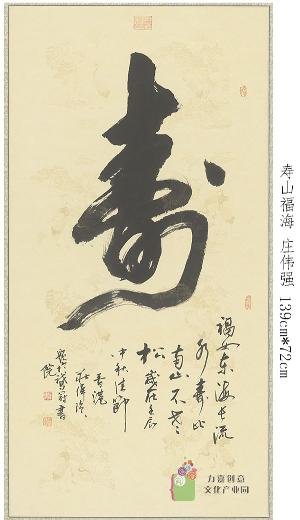 寿
福如东海长流
水寿比
南山不老
松 岁在壬辰
中秋佳节
香港
庄伟强
书
院
寿山福海 庄伟强 139cm*72cm
力嘉创意
文化产业园